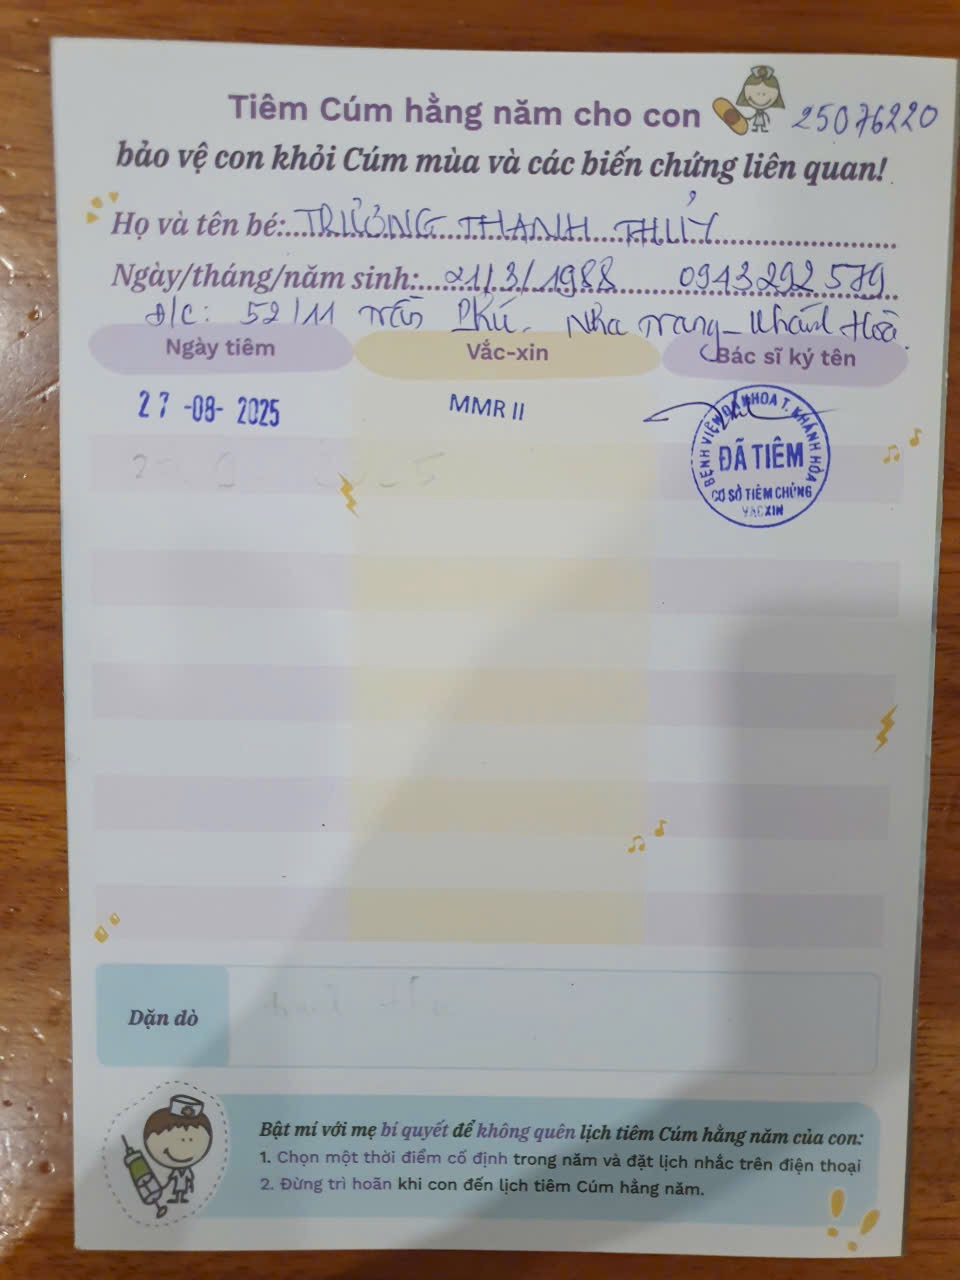 Tiêm Cúm hằng năm cho con
25076220
bảo vệ con khỏi Cúm mùa và các biến chứng liên quan!
Họ và tên bé: TRƯƠNG THANH THỦY
Ngày/tháng/năm sinh: 21/3/1988 0943292579
Đ/c: 52/11 Trần Phú. Nha Trang - Khánh Hoà.
Ngày tiêm Vắc-xin Bác sĩ ký tên
27 -08- 2025 MMR II
BỆNH VIỆN ĐA KHOA T. KHÁNH HÒA
ĐÃ TIÊM
CƠ SỞ TIÊM CHỦNG
VACXIN
Dặn dò
Bật mí với mẹ bí quyết để không quên lịch tiêm Cúm hằng năm của con:
1. Chọn một thời điểm cố định trong năm và đặt lịch nhắc trên điện thoại
2. Đừng trì hoãn khi con đến lịch tiêm Cúm hằng năm.